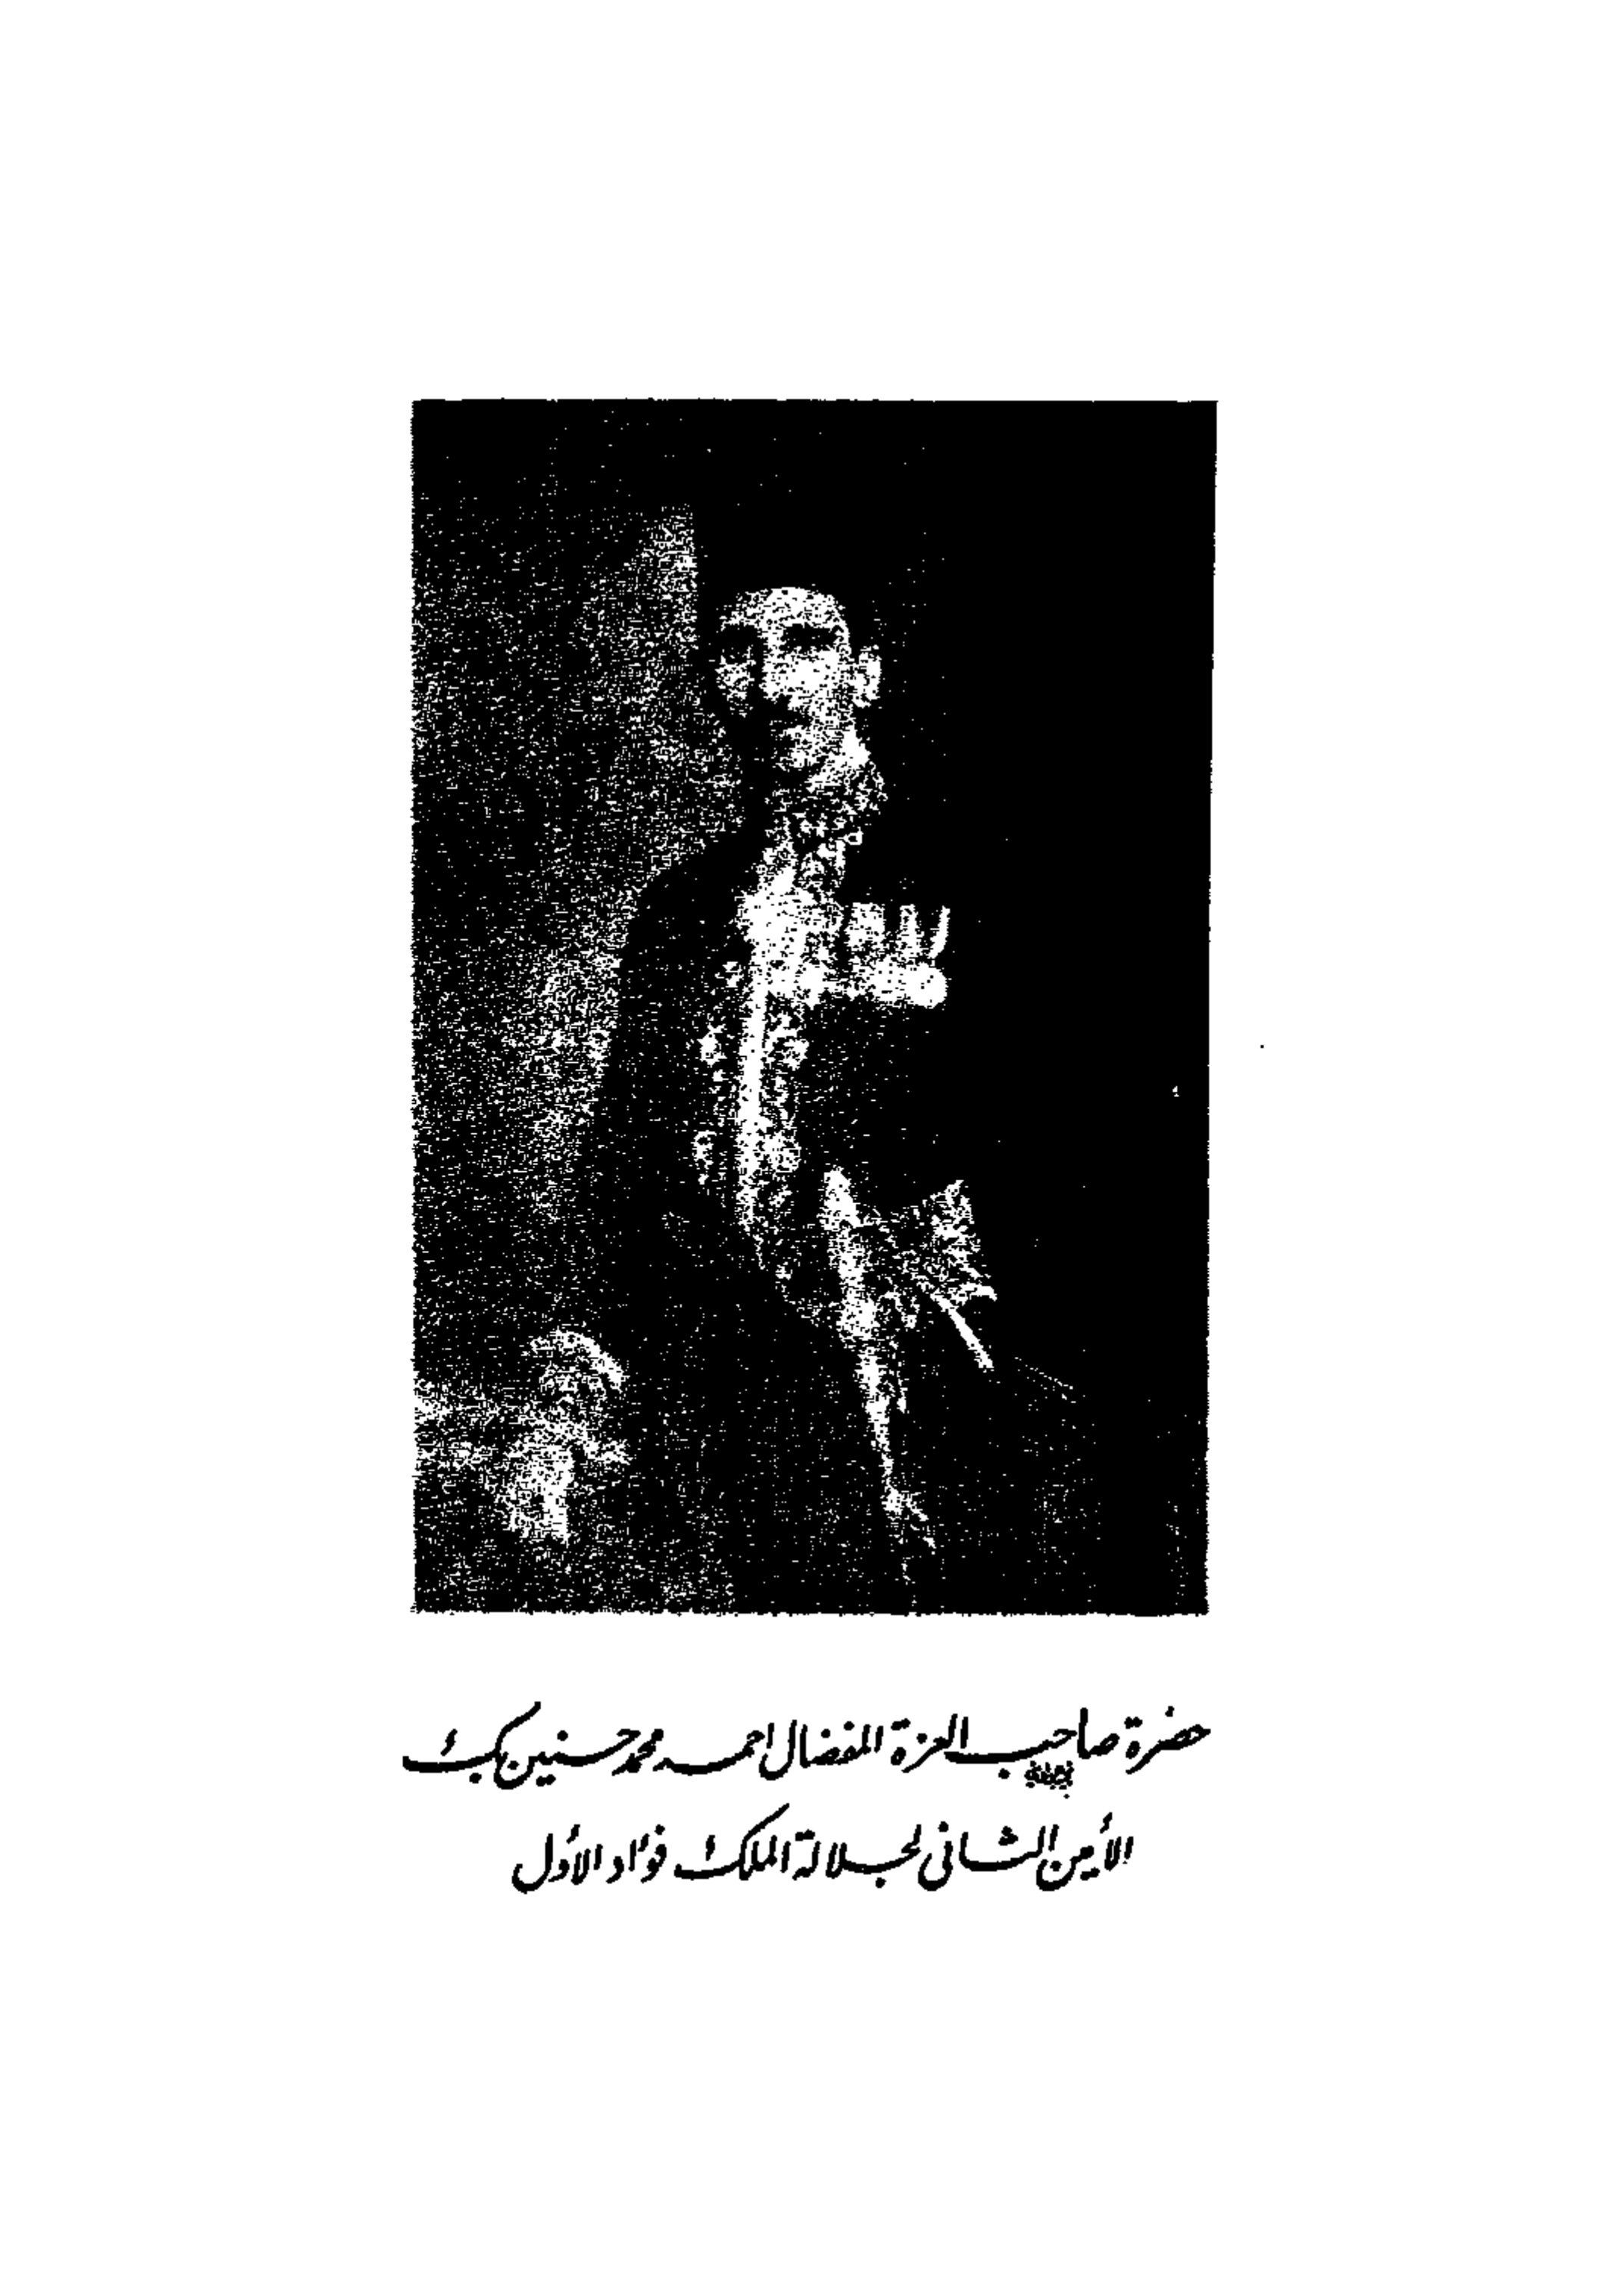 حضرة صاحب العزة المفضال احمد محمد حسنين بك
الأمين الثانى لجلالة الملك فؤاد الأول